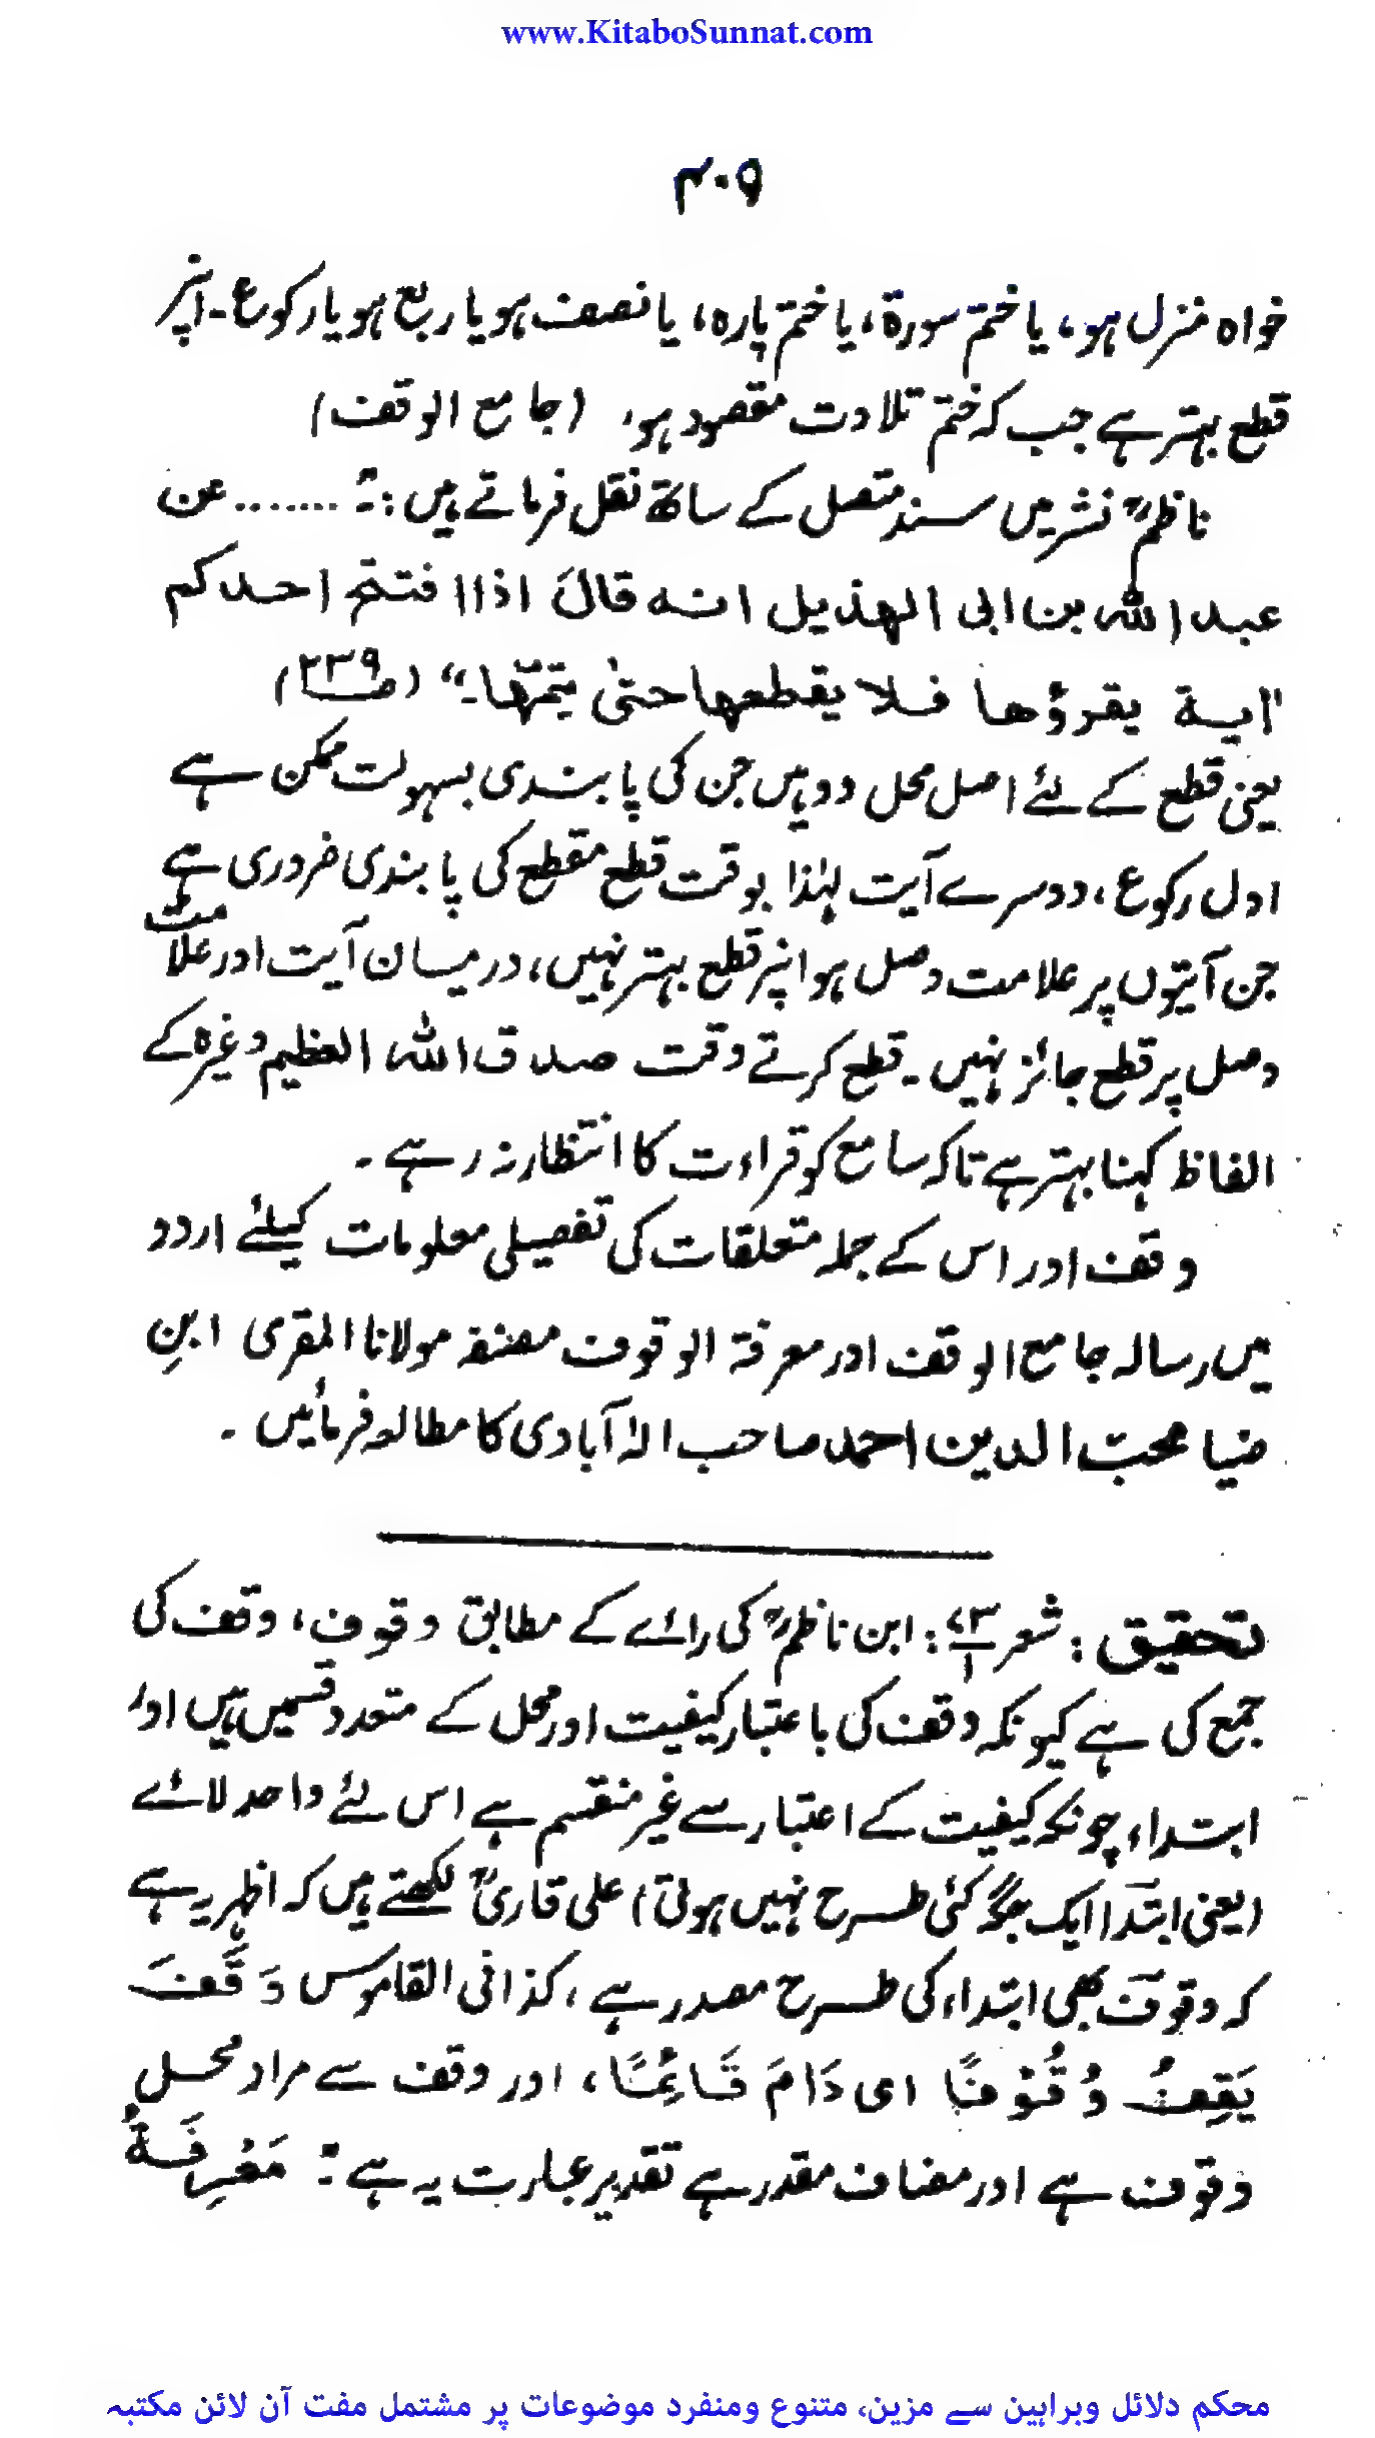 www.KitaboSunnat.com
۴۰۵
خواہ منزل ہو، یا ختم سورۃ، یا ختم پارہ، یا نصف ہو یا ربع ہو یا رکوع۔ انپر
قطع بہتر ہے جب کہ ختم تلاوت مقصود ہو، (جامع الوقف)
ناظمؒ نشر میں سند متصل کے ساتھ نقل فرماتے ہیں :۔ "....... عن
عبد اللہ بن ابی الہذیل انہ قالَ اذا افتتح احدکم
اٰیۃ یقرؤھا فلا یقطعھا حتیٰ یتمّھا۔" (ص۲۳۹)
یعنی قطع کے لئے اصل محل دو ہیں جن کی پابندی بسہولت ممکن ہے
اول رکوع، دوسرے آیت لہٰذا بوقت قطع مقطع کی پابندی ضروری ہے
جن آیتوں پر علامت وصل ہو انپر قطع بہتر نہیں، درمیان آیت اور علامت
وصل پر قطع جائز نہیں۔ قطع کرتے وقت صدق اللہ العظیم وغیرہ کے
الفاظ کہنا بہتر ہے تاکہ سامع کو قراءت کا انتظار نہ رہے۔
وقف اور اس کے جملہ متعلقات کی تفصیلی معلومات کیلئے اردو
میں رسالہ جامع الوقف اور معرفۃ الوقوف مصنفہ مولانا المقری ابنِ
ضیا محبّ الدین احمد صاحب الہٰ آبادی کا مطالعہ فرمائیں۔
تحقیق : شعر ۷۳/۱ : ابن ناظمؒ کی رائے کے مطابق وقوف، وقف کی
جمع کی ہے کیونکہ وقف کی باعتبار کیفیت اور محل کے متعدد قسمیں ہیں اور
ابتداء چونکہ کیفیت کے اعتبار سے غیر منقسم ہے اس لئے واحد لائے
(یعنی ابتدا ایک جگہ کئی طرح نہیں ہوتی) علی قاریؒ لکھتے ہیں کہ اظہر یہ ہے
کہ وقوف بھی ابتداء کی طرح مصدر ہے، کذا فی القاموس وَقَفَ
یَقِفُ وُقُوْفًا ای دَامَ قَائِمًا، اور وقف سے مراد محل
وقوف ہے اور مضاف مقدر ہے تقدیر عبارت یہ ہے :۔ مَعْرِفَۃُ
محکم دلائل وبراہین سے مزین، متنوع ومنفرد موضوعات پر مشتمل مفت آن لائن مکتبہ